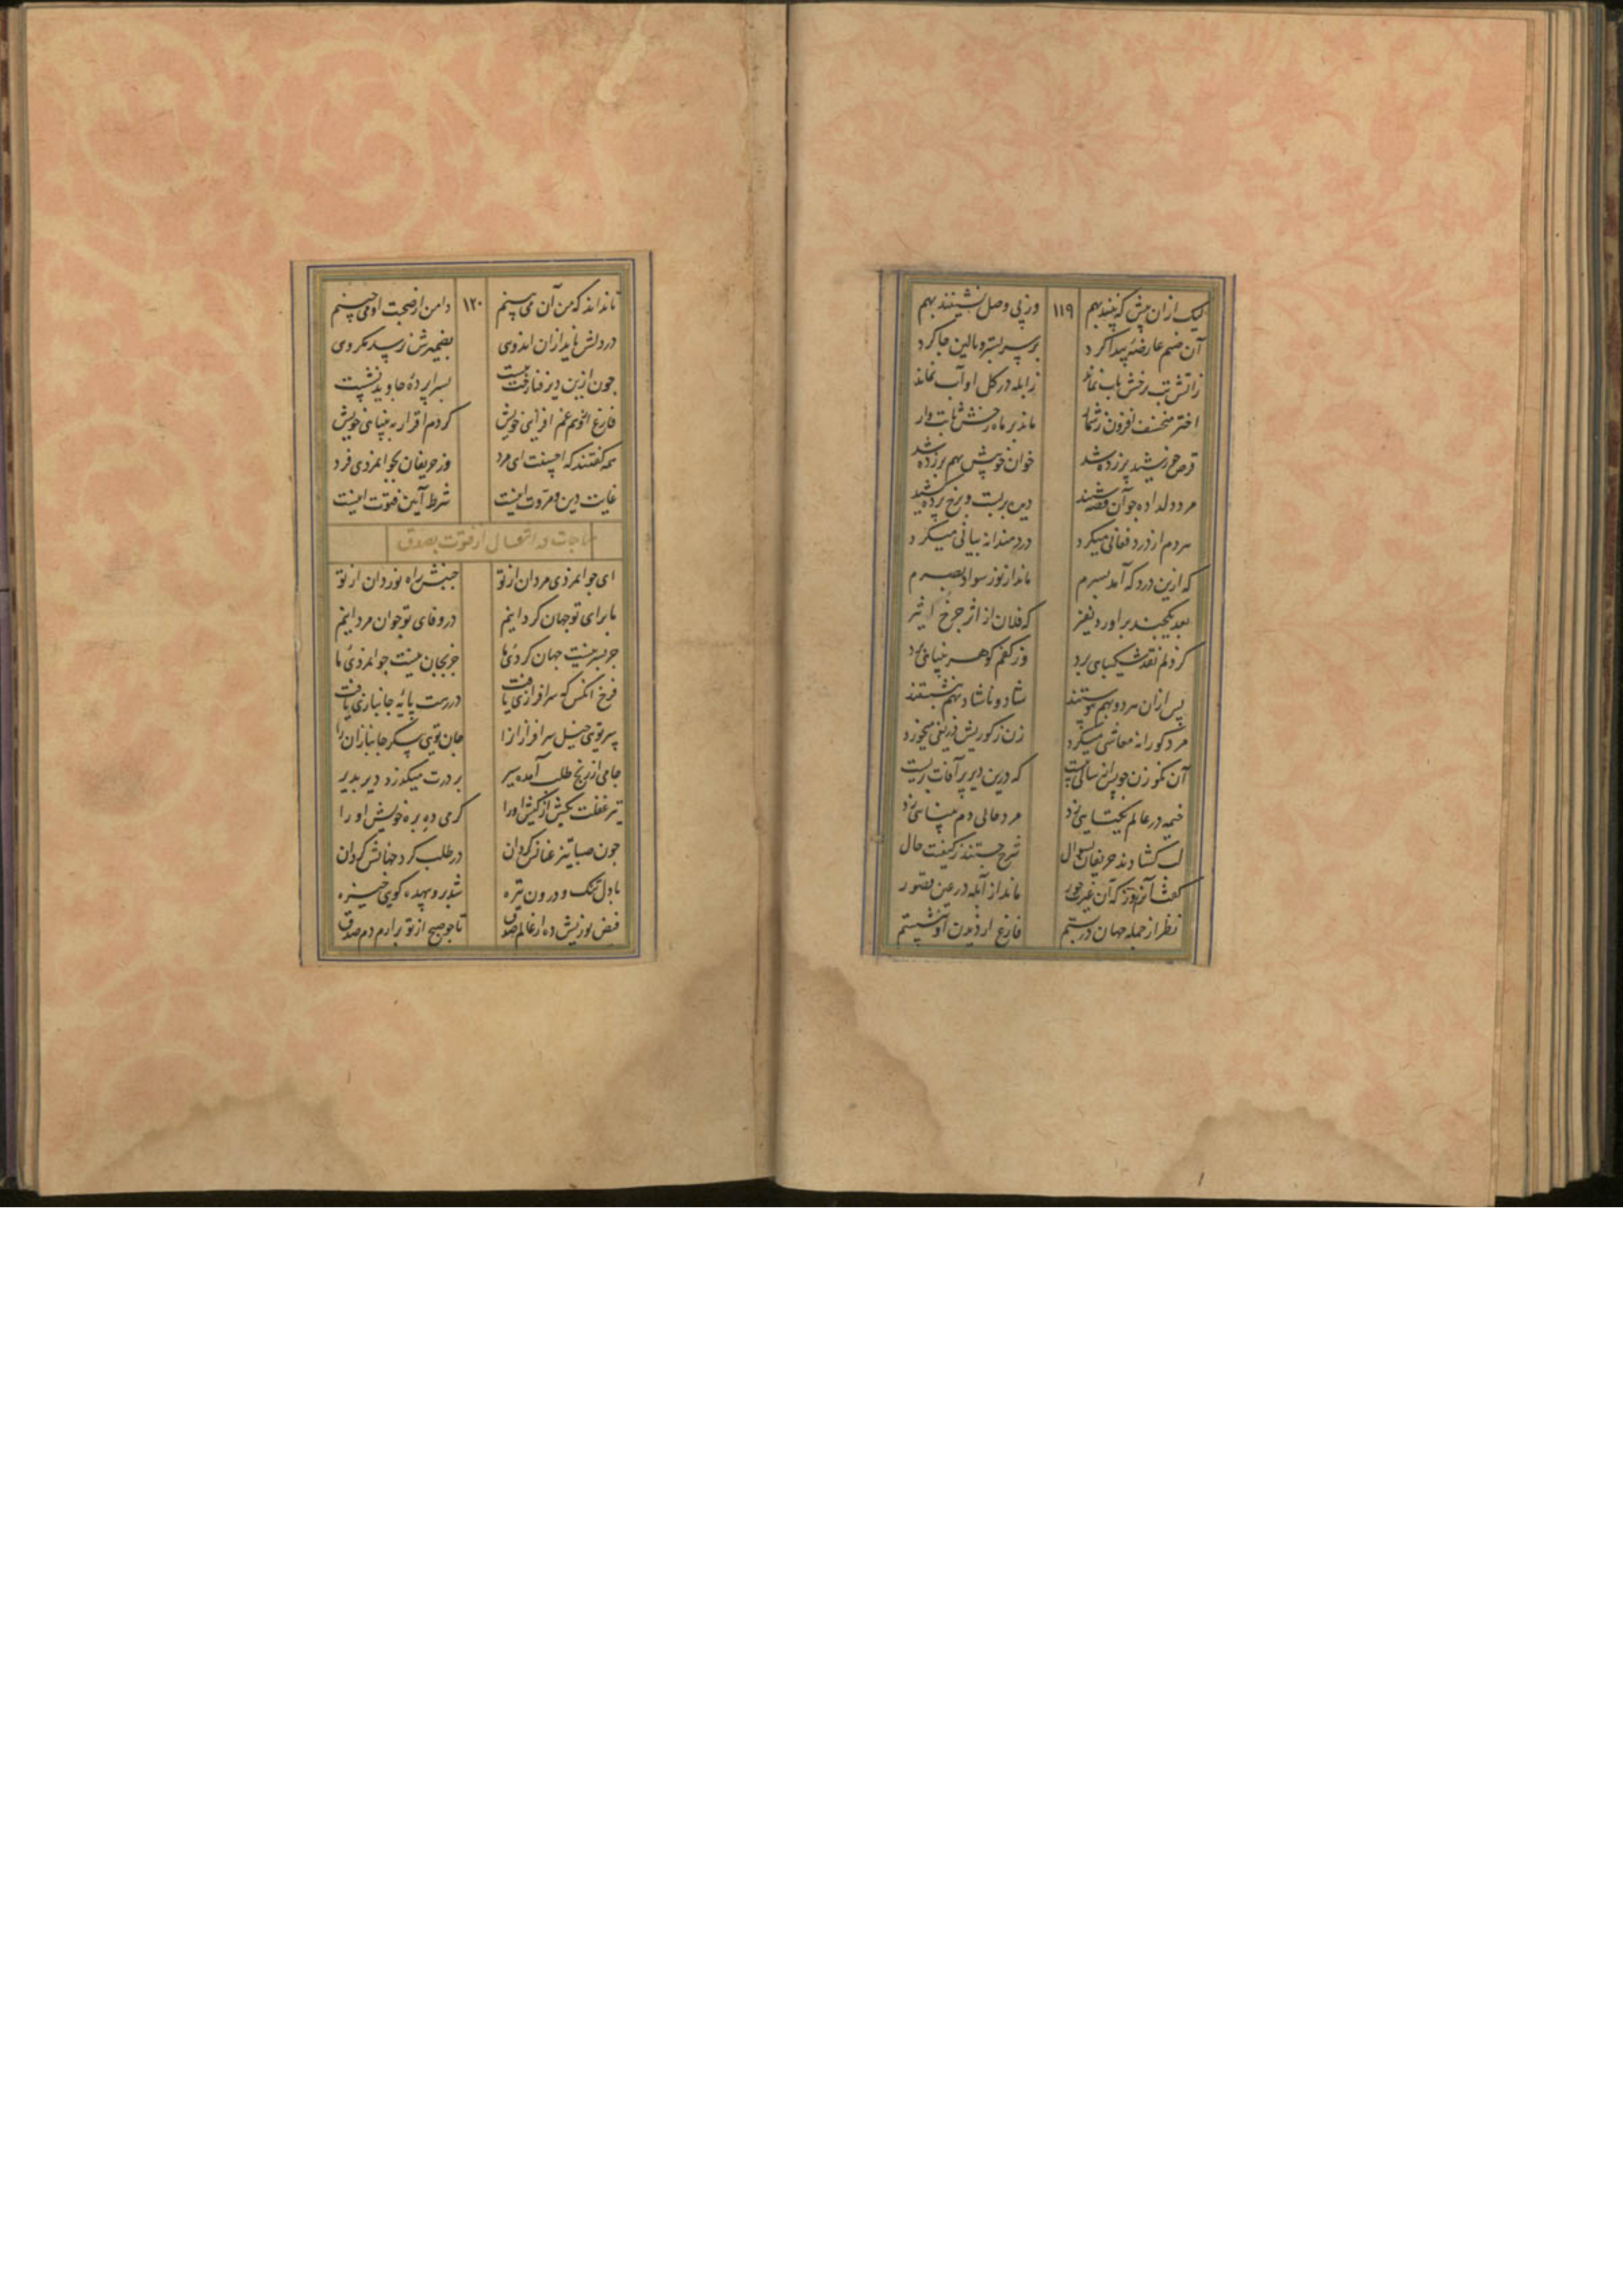 لیک ازان پیش که پیند بهم ۱۱۹ وز پی وصل نشینند بهم
آن صنم عارضهٔ پیدا کرد بر سر بستر و بالین جا کرد
ز آتش تب رخش تاب نماند ز ابله در گل او آب نماند
اختر منخسف افزون ز شمار ماند بر ماه رخش ثابت وار
قرص خورشید پر زده شد خوان خوبیش بهم بر زده شد
مرد دلداده جو آن قصه شنید دیده بربست و برخ پرده کشید
هر دم از درد فغانی میکرد دردمندانه بیانی میکرد
که ازین درد که آمد بسرم ماند از نور سواد بصرم
بعد یکچند براورد نفیر که فلان از اثر جرخ اثیر
کز دلم نقد شکیبایی برد وز کفم کوهر بینایی برد
پس ازان هر دو بهم پیوستند شاد و ناشاد بهم بنشستند
مرد کورانه معاشی میکرد زن ز کوریش دریغی میخورد
آن نکو زن جو پس از سالی بیست که درین دیر پر آفات بزیست
خیمه در عالم یکتایی زد مرد حالی دم بینایی زد
لب کشادند حریفان بسوال شرح جستند ز کیفیت حال
کفت آنروز که آن غیرت حور ماند از آبله در عین قصور
نظر از جمله جهان در بستم فارغ از دیدن او بنشستم
تا نداند که من آن می بینم ۱۲۰ دامن از صحبت او می چینم
در دلش ناید ازان اندوی بضمیرش نرسد مکروی
جون ازین دیر فنا رخت ببست بسراپردهٔ جاوید نشست
فارغ از وهم غم افزایی خویش کردم اقرار به بینایی خویش
همه کفتند که احسنت ای مرد وز حریفان بجوانمردی فرد
غایت دین و مروت اینست شرط آیین فتوت اینست
مناجات در انتقال از فتوت بصدق
ای جوانمردی مردان از تو جنبش راه نوردان از تو
ما برای تو جهان کردانیم در وفای تو جوان مردانیم
جز بسر نیست جهان کردئ ما جز بجان نیست جوانمردئ ما
فرخ انکس که سرافرازی یافت در رهت پایهٔ جانبازی یافت
سر تویی خیل سرافرازانرا جان تویی پیکر جانبازان را
جامی از رنج طلب آمده سیر بر درت میکذرد دیر بدیر
تیر غفلت بکش از کیش او را کرمی ده بره خویش او را
جون صبا تیز عنانش کردان در طلب کرد جهانش کردان
با دل تنک و درون تیره شد بر و بیهده کویی خیره
فیض نوریش ده از عالم صدق تا جو صبح از تو برارم دم صدق